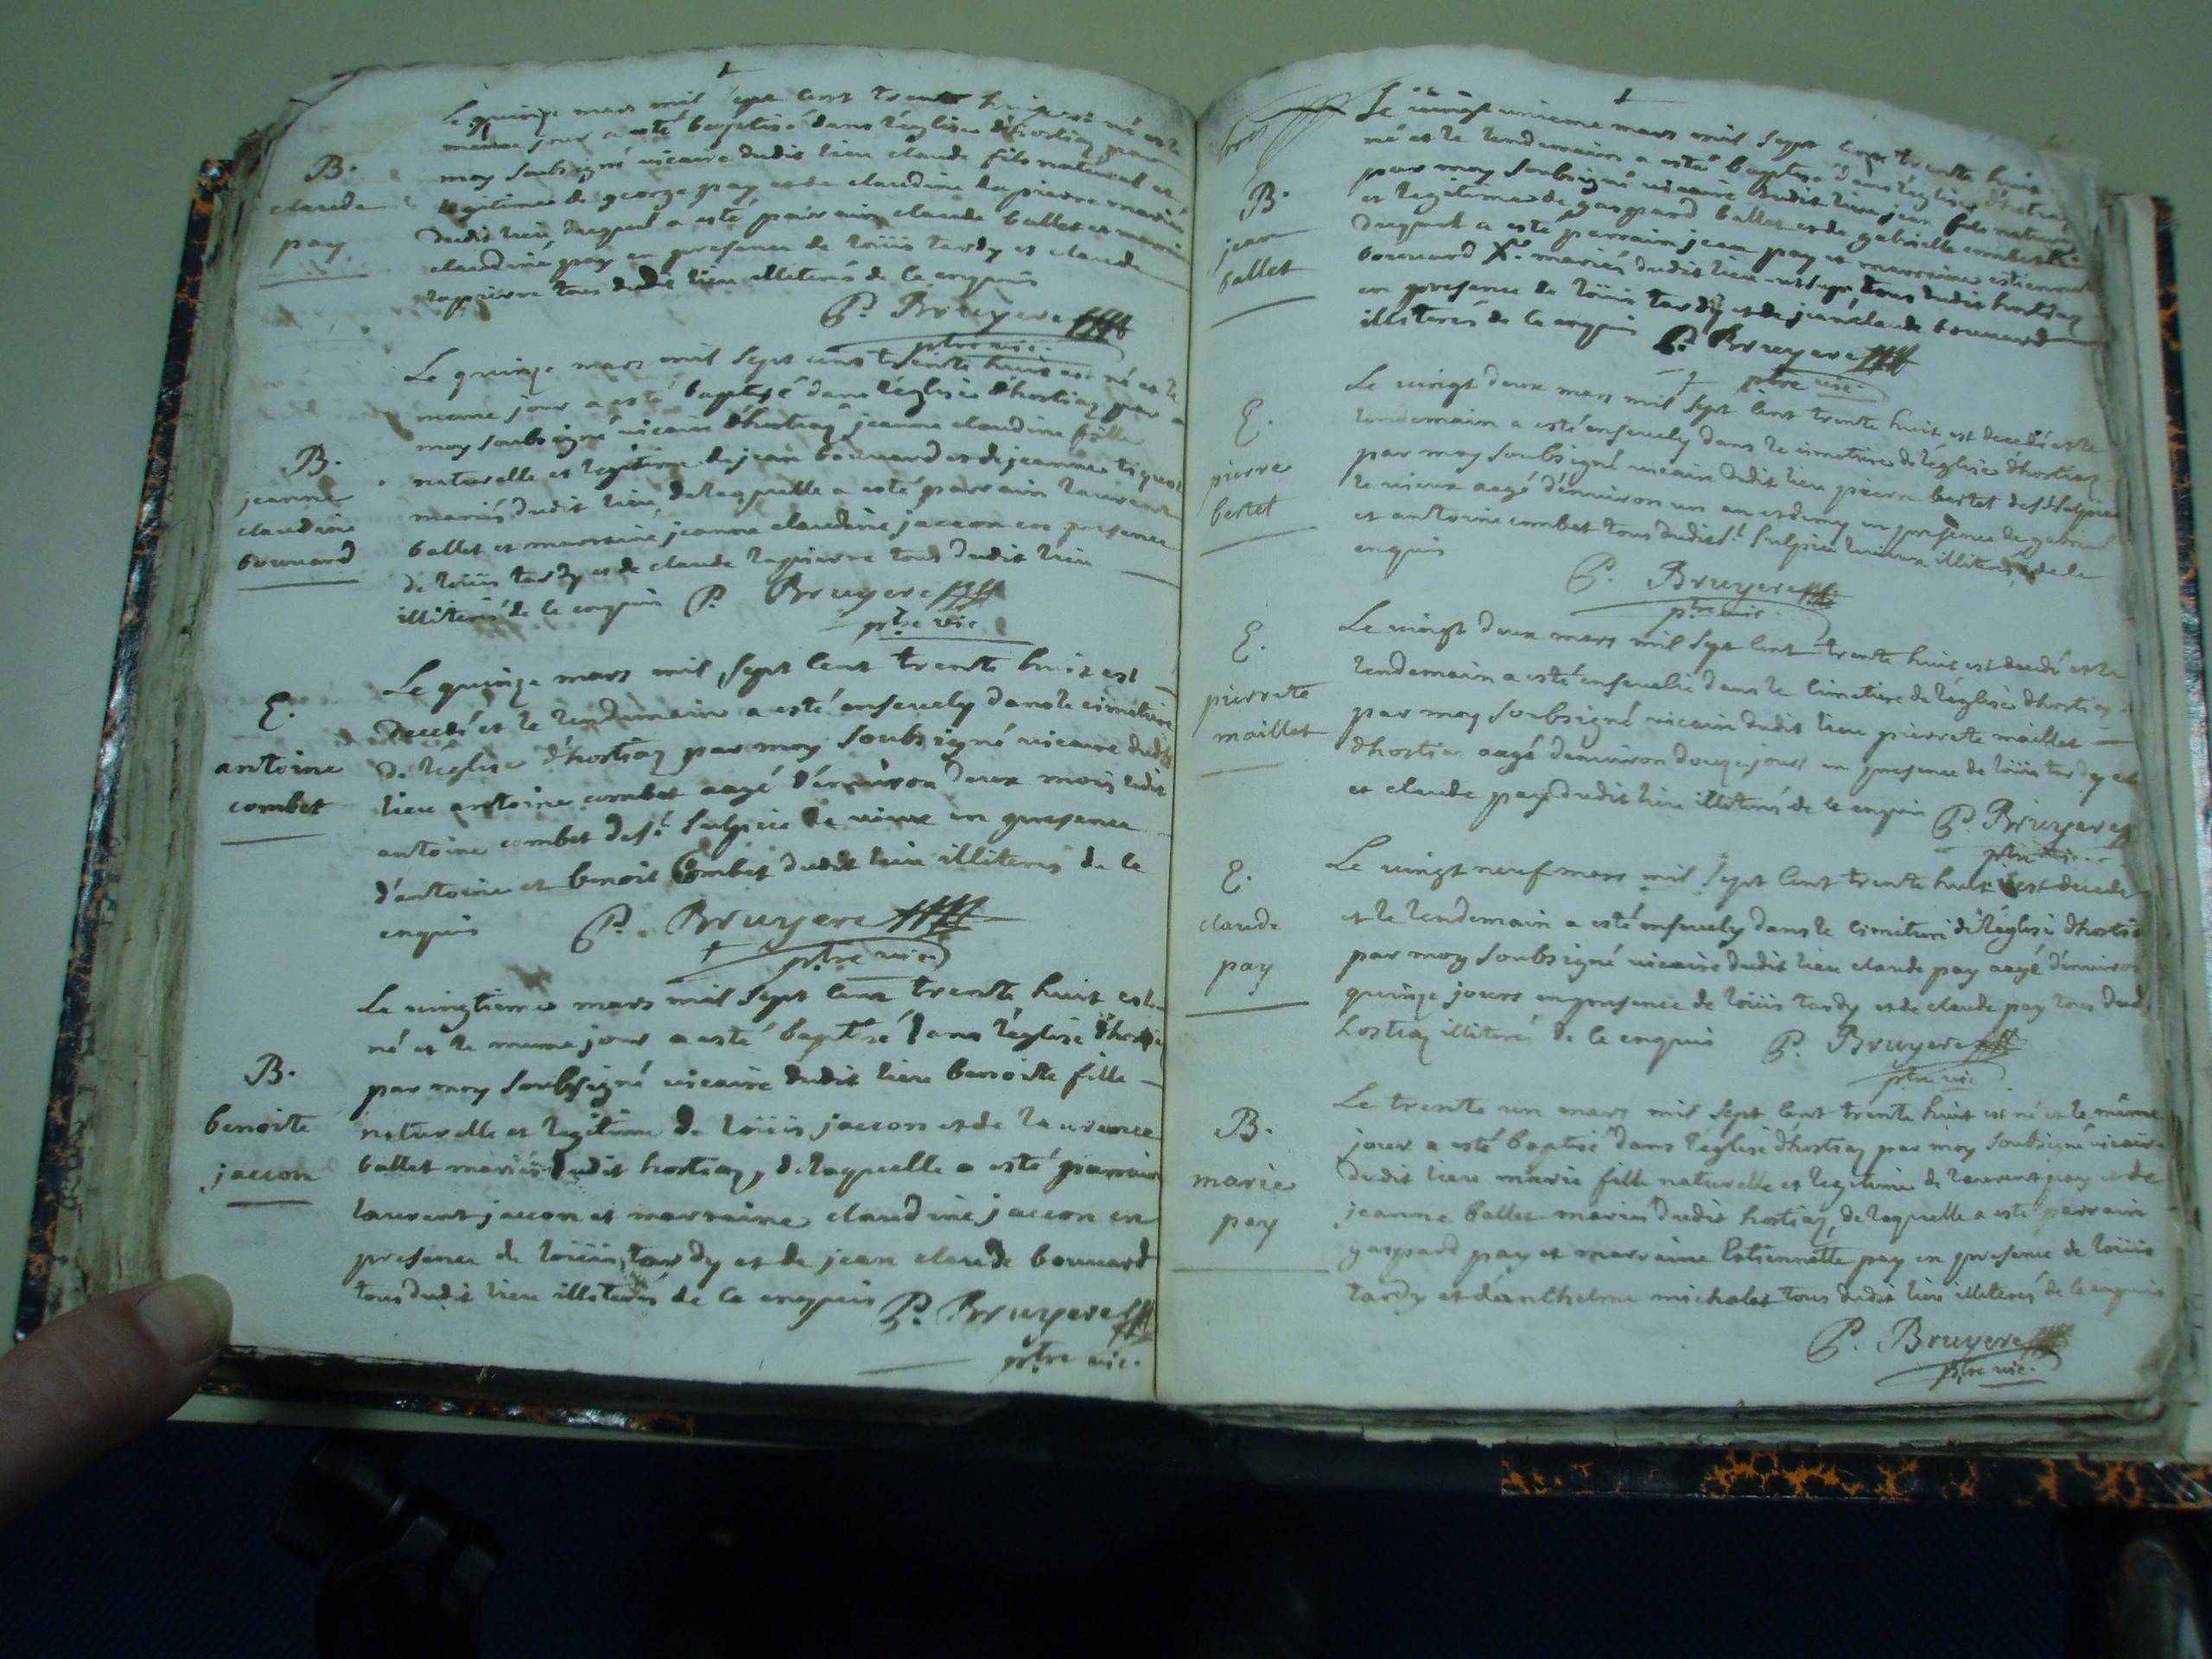 B.
claude
pay
Le quinze mars mil sept cent trente huit est né et le
meme jour a esté baptisé dans l'église d'hostiaz par
moy soubsigné vicaire dudit lieu claude fils naturel et
legitime de george pay et de claudine lapierre mariés
dudit lieu duquel a esté parrain claude ballet et marraine
claudine pay en presence de loüis tardy et claude
lapierre tous dudit lieu illiterés de ce enquis
P. Bruyere
ptre vic.
B.
jeanne
claudine
bouuard
Le quinze mars mil sept cent trente huit est né et le
meme jour a esté baptisé dans l'église d'hostiaz par
moy soubsigné vicaire d'hostiaz jeanne claudine fille
naturelle et legitime de jean bouuard et de jeanne
mariés dudit lieu de laquelle a esté parrain laurent
ballet et marraine jeanne claudine jaccon en presence
de loüis tardy et de claude lapierre tous dudit lieu
illiterés de ce enquis P. Bruyere
ptre vic.
E.
antoine
combet
Le quinze mars mil sept cent trente huit est
decedé et le lendemain a esté enseuely dans le cimetiere
de l'église d'hostiaz par moy soubsigné vicaire dudit
lieu antoine combet aagé d'enuiron deux mois
antoine combet de st. Sulpice le vieux en presence
d'antoine et benoit Combet dudit lieu illiterés de ce
enquis P. Bruyere
ptre vic.
B.
benoite
jaccon
Le vingtieme mars mil sept cent trente huit est
né et le meme jour a esté baptisé dans l'église d'hostiaz
par moy soubsigné vicaire dudit lieu benoite fille
naturelle et legitime de loüis jaccon et de laurence
ballet mariés dudit hostiaz, de laquelle a esté parrain
laurent jaccon et marraine claudine jaccon en
presence de loüis tardy et de jean claude bouuard
tous dudit lieu illiterés de ce enquis P. Bruyere
ptre vic.
B.
jean
ballet
Le vingt unieme mars mil sept cent trente huit
né et le lendemain a esté baptisé dans l'église d'hostiaz
par moy soubsigné vicaire dudit lieu jean fils naturel
et legitime de gaspard ballet et de gabrielle combet
duquel a esté parrain jean pay et marraine estiennette
bouuard mariés dudit lieu tous dudit hostiaz
en presence de loüis tardy et de jean claude bouuard
illiterés de ce enquis P. Bruyere
ptre vic.
E.
pierre
bertet
Le vingt deux mars mil sept cent trente huit est decedé et le
lendemain a esté enseuely dans le cimetiere de l'église d'hostiaz
par moy soubsigné vicaire dudit lieu pierre bertet de st Sulpice
le vieux aagé d'enuiron un an et demy en presence de gabriel
et antoine combet tous dudit st. Sulpice le vieux illiterés de ce
enquis
P. Bruyere
ptre vic.
E.
pierrete
maillet
Le vingt deux mars mil sept cent trente huit est decedé et le
lendemain a esté enseuelie dans le cimetiere de l'église d'hostiaz
par moy soubsigné vicaire dudit lieu pierrete maillet
d'hostiaz aagé d'enuiron douze jours en presence de loüis tardy et
et claude pay dudit lieu illiterés de ce enquis P. Bruyere
ptre vic.
E.
claude
pay
Le vingt neuf mars mil sept cent trente huit est decedé
et le lendemain a esté enseuely dans le cimitiere de l'église d'hostiaz
par moy soubsigné vicaire dudit lieu claude pay aagé d'enuiron
quinze jours en presence de loüis tardy et de claude pay tous dud
hostiaz illiterés de ce enquis P. Bruyere
ptre vic
B.
marie
pay
Le trente un mars mil sept cent trente huit est né et le même
jour a esté baptisé dans l'église d'hostiaz par moy soubsigné vicaire
dudit lieu marie fille naturelle et legitime de laurent pay et de
jeanne ballet mariés dudit hostiaz, de laquelle a esté parrain
gaspard pay et marraine Estiennette pay en presence de loüis
tardy et d'anthelme michalet tous dudit lieu illiterés de ce enquis
P. Bruyere
ptre vic.